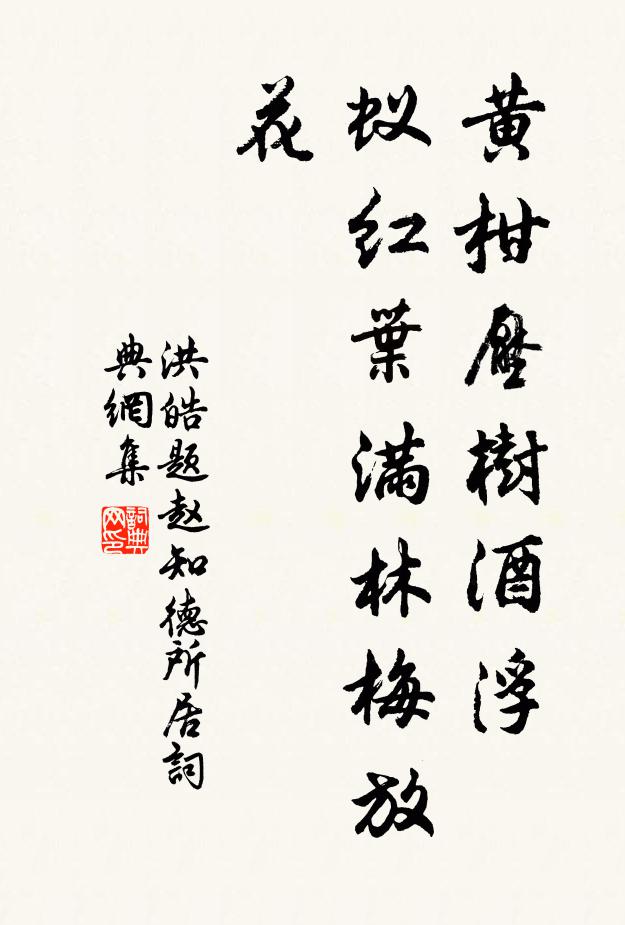 黄柑壓樹酒浮
蚁红葉滿林梅放
花
洪皓题赵知德所居詞
典網集
詞典
网印